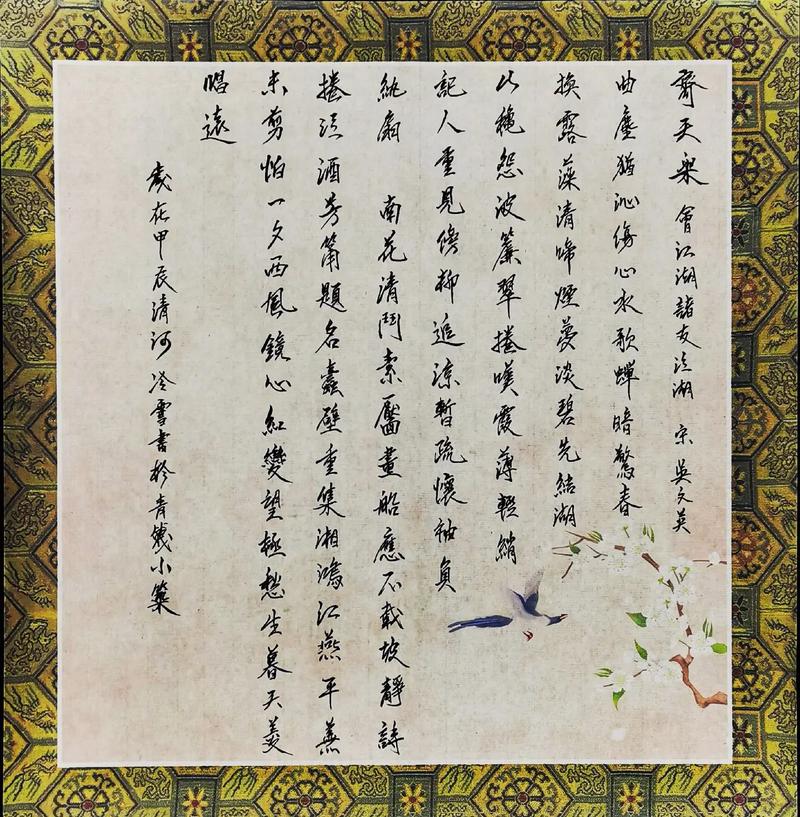 齊天樂 會江湖諸友泛湖 宋 吳文英
曲塵猶沁傷心水歌蟬暗驚春
換露藻清啼煙夢淡碧先結湖
山穐怨波簾翠捲嘆霞薄輕綃
記人重見傍柳追涼暫疏懷袖負
紈扇 南花清鬥素靨畫船應不載坡靜詩
捲泛酒芳筩題名蠹壁重集湘鴻江燕平蕪
未剪怕一夕西風鏡心紅變望極愁生暮天菱
唱遠
歲在甲辰清河冷雪書於青小築